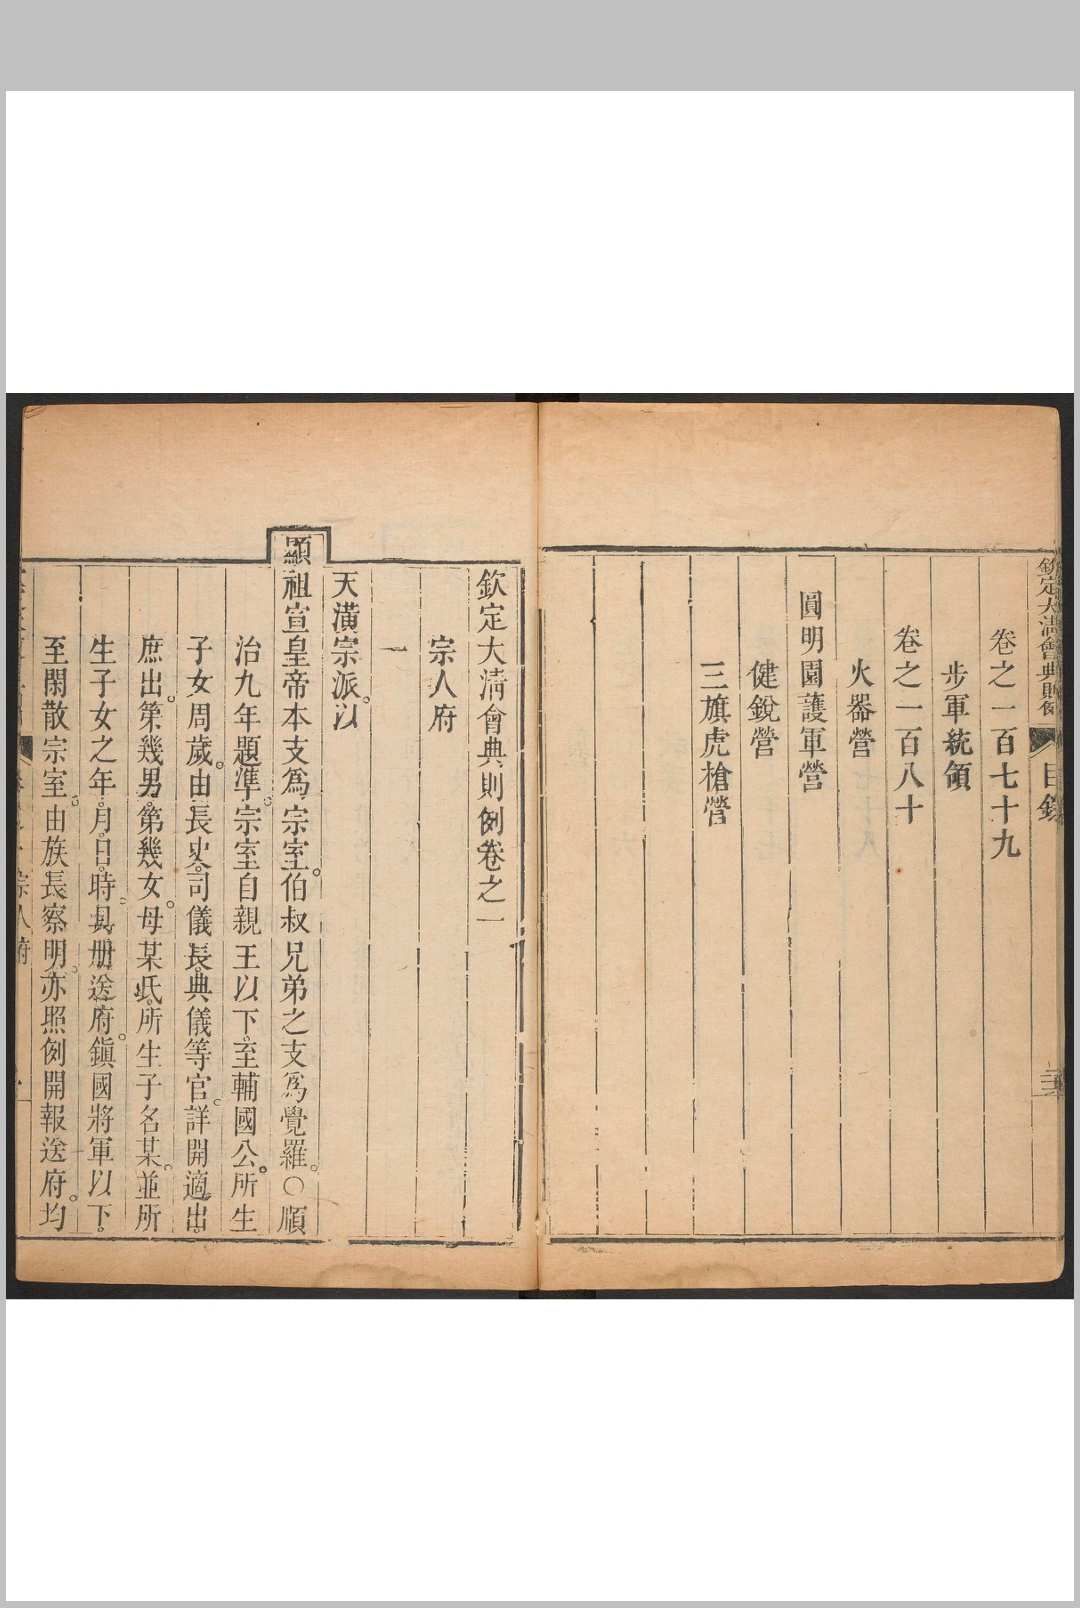 欽定大清會典則例
目錄
卷之一百七十九
步軍統領
卷之一百八十
火器營
圓明園護軍營
健銳營
三旗虎槍營
欽定大清會典則例卷之一
宗人府
一
天潢宗派。以
顯祖宣皇帝本支爲宗室。伯叔兄弟之支爲覺羅。○順
治九年題準。宗室自親王以下。至輔國公。所生
子女周歲。由長史。司儀長。典儀等官。詳開適出。
庶出。第幾男。第幾女。母某氏。所生子名某。並所
生子女之年。月。日。時。具册送府。鎭國將軍以下。
至閑散宗室。由族長察明。亦照例開報送府。均
宗人府